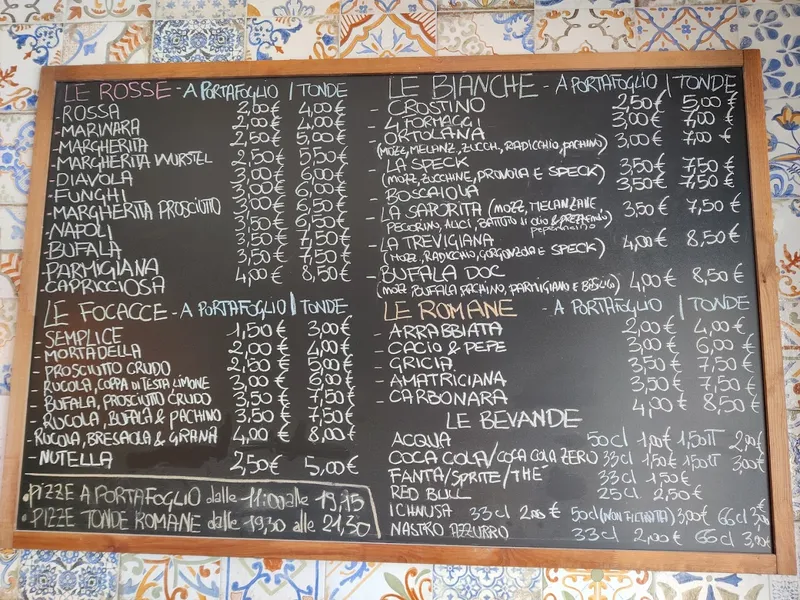 LE ROSSE - A PORTAFOGLIO | TONDE
- ROSSA 2,00€ 4,00€
- MARINARA 2,00€ 4,00€
- MARGHERITA 2,50€ 5,00€
- MARGHERITA WURSTEL 2,50€ 5,50€
- DIAVOLA 3,00€ 6,00€
- FUNGHI 3,00€ 6,00€
- MARGHERITA PROSCIUTTO 3,00€ 6,50€
- NAPOLI 3,50€ 6,50€
- BUFALA 3,50€ 7,50€
- PARMIGIANA 3,50€ 7,50€
- CAPRICCIOSA 4,00€ 8,50€
LE FOCACCE - A PORTAFOGLIO | TONDE
- SEMPLICE 1,50€ 3,00€
- MORTADELLA 2,00€ 4,00€
- PROSCIUTTO CRUDO 2,50€ 5,00€
- RUCOLA, COPPA DI TESTA LIMONE 3,00€ 6,00€
- BUFALA, PROSCIUTTO CRUDO 3,50€ 7,50€
- RUCOLA, BUFALA & PACHINO 3,50€ 7,50€
- RUCOLA, BRESAOLA & GRANA 4,00€ 8,00€
- NUTELLA 2,50€ 5,00€
• PIZZE A PORTAFOGLIO dalle 11:00 alle 19,15
• PIZZE TONDE ROMANE dalle 19,30 alle 21,30
LE BIANCHE - A PORTAFOGLIO | TONDE
- CROSTINO 2,50€ 5,00€
- 4 FORMAGGI 3,00€ 7,00€
- ORTOLANA 3,00€ 7,00€
(MOZZ, MELANZ, ZUCCH, RADICCHIO, PACHINO)
- LA SPECK 3,50€ 7,50€
(MOZZ, ZUCCHINE, PROVOLA E SPECK)
- BOSCAIOLA 3,50€ 7,50€
- LA SAPORITA (MOZZ, MELANZANE 3,50€ 7,50€
PECORINO, ALICI, BATTUTO di olio & peperoncino
- LA TREVIGIANA 4,00€ 8,50€
(MOZZ, RADICCHIO, GORGONZOLA E SPECK)
- BUFALA DOC 4,00€ 8,50€
(MOZZ BUFALA PACHINO, PARMIGIANO E BASILICO)
LE ROMANE - A PORTAFOGLIO | TONDE
- ARRABBIATA 2,00€ 4,00€
- CACIO & PEPE 3,00€ 6,00€
- GRICIA 3,50€ 7,50€
- AMATRICIANA 3,50€ 7,50€
- CARBONARA 4,00€ 8,50€
LE BEVANDE
ACQUA 50cl 1,00€ 1,50lT 2,00€
COCA COLA/COCA COLA ZERO 33cl 1,50€ 1,50lT 3,00€
FANTA/SPRITE/THE' 33cl 1,50€
RED BULL 25cl 2,50€
ICHNUSA 33cl 2,00€ 50cl (NON FILTRATA) 3,00€ 66cl 3,00€
NASTRO AZZURRO 33cl 2,00€ 66cl 3,00€